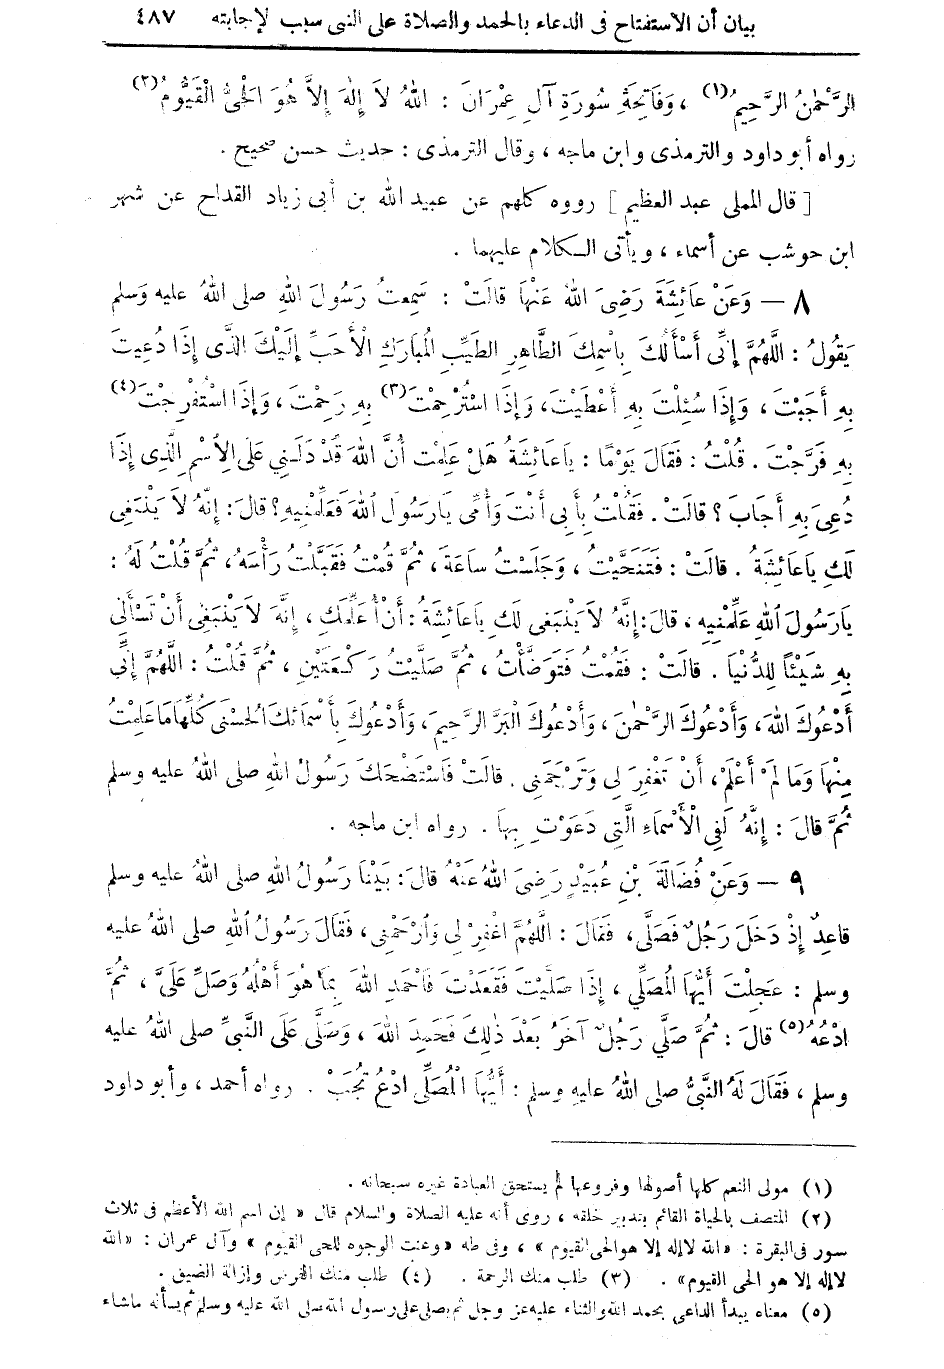 بيان أن الاستفتاح فى الدعاء بالحمد والصلاة على النبى سبب لإجابته ٤٨٧
الرَّحْمٰنُ الرَّحِيمُ(١) ، وَفَاتِحَةِ سُورَةِ آلِ عِمْرَانَ : اللهُ لاَ إِلٰهَ إِلاَّ هُوَ الْحَىُّ الْقَيُّومُ(٢)
رواه أبو داود والترمذى وابن ماجه ، وقال الترمذى : حديث حسن صحيح .
[ قال المملى عبد العظيم ] رووه كلهم عن عبيد الله بن أبى زياد القداح عن شهر
ابن حوشب عن أسماء ، ويأتى الكلام عليهما .
٨ — وَعَنْ عَائِشَةَ رَضِىَ اللهُ عَنْهَا قَالَتْ : سَمِعْتُ رَسُولَ اللهِ صلى اللهُ عليه وَسلم
يَقُولُ : اللَّهُمَّ إِنِّى أَسْأَلُكَ بِاسْمِكَ الطَّاهِرِ الطَّيِّبِ الْمُبَارَكِ الْأَحَبِّ إِلَيْكَ الَّذِى إِذَا دُعِيتَ
بِهِ أَجَبْتَ ، وَإِذَا سُئِلْتَ بِهِ أَعْطَيْتَ ، وَإِذَا اسْتُرْحِمْتَ(٣) بِهِ رَحِمْتَ ، وَإِذَا اسْتُفْرِجْتَ(٤)
بِهِ فَرَّجْتَ . قُلْتُ : فَقَالَ يَوْمًا : يَاعَائِشَةُ هَلْ عَلِمْتِ أَنَّ اللهَ قَدْ دَلَّنِي عَلَى الِاسْمِ الَّذِى إِذَا
دُعِىَ بِهِ أَجَابَ ؟ قالَتْ . فَقُلْتُ بِأَبِى أَنْتَ وَأُمِّى يَارَسُولَ اللهِ فَعَلِّمْنِيهِ ؟ قالَ : إِنَّهُ لاَ يَنْبَغِى
لَكِ يَاعَائِشَةُ . قالَتْ : فَتَنَحَّيْتُ ، وَجَلَسْتُ سَاعَةً ، ثُمَّ قُمْتُ فَقَبَّلْتُ رَأْسَهُ ، ثُمَّ قُلْتُ لَهُ :
يَارَسُولَ اللهِ عَلِّمْنِيهِ ، قالَ : إِنَّهُ لاَ يَنْبَغِى لَكِ يَاعَائِشَةُ : أَنْ أُعَلِّمَكِ ، إِنَّهُ لاَ يَنْبَغِى أَنْ تَسْأَلِى
بِهِ شَيْئًا لِلدُّنْيَا . قالَتْ : فَقُمْتُ فَتَوَضَّأْتُ ، ثُمَّ صَلَّيْتُ رَكْعَتَيْنِ ، ثُمَّ قُلْتُ : اللَّهُمَّ إِنِّى
أَدْعُوكَ اللهَ ، وَأَدْعُوكَ الرَّحْمٰنَ ، وَأَدْعُوكَ الْبَرَّ الرَّحِيمَ ، وَأَدْعُوكَ بِأَسْمَائِكَ الْحُسْنَى كُلِّهَا مَا عَلِمْتُ
مِنْهَا وَمَا لَمْ أَعْلَمْ ، أَنْ تَغْفِرَ لِى وَتَرْحَمَنِى . قالَتْ فَاسْتَضْحَكَ رَسُولُ اللهِ صلى اللهُ عليه وسلم
ثُمَّ قالَ : إِنَّهُ لَفِى الْأَسْمَاءِ الَّتِى دَعَوْتِ بِهَا . رواه ابن ماجه .
٩ — وَعَنْ فُضَالَةَ بْنِ عُبَيْدٍ رَضِىَ اللهُ عَنْهُ قالَ : بَيْنَا رَسُولُ اللهِ صلى اللهُ عليه وسلم
قاعِدٌ إِذْ دَخَلَ رَجُلٌ فَصَلَّى ، فَقَالَ : اللَّهُمَّ اغْفِرْ لِى وَارْحَمْنِى ، فَقَالَ رَسُولُ اللهِ صلى اللهُ عليه
وسلم : عَجِلْتَ أَيُّهَا الْمُصَلِّي ، إِذَا صَلَّيْتَ فَقَعَدْتَ فَاحْمَدِ اللهَ بِمَا هُوَ أَهْلُهُ وَصَلِّ عَلَىَّ ، ثُمَّ
ادْعُهُ(٥) قالَ : ثُمَّ صَلَّي رَجُلٌ آخَرُ بَعْدَ ذٰلِكَ فَحَمِدَ اللهَ ، وَصَلَّى عَلَى النَّبِىِّ صلى اللهُ عليه
وسلم ، فَقَالَ لَهُ النَّبِىُّ صلى اللهُ عليهِ وسلم : أَيُّهَا الْمُصَلِّى ادْعُ تُجَبْ . رواه أحمد ، وأبو داود
(١) مولى النعم كلها أصولها وفروعها لم يستحق العبادة غيره سبحانه .
(٢) المتصف بالحياة القائم بتدبير خلقه ، روى أنه عليه الصلاة والسلام قال « إن اسم الله الأعظم فى ثلاث
سور فى البقرة : «الله لاإله إلا هوالحى القيوم » ، وفى طه «وعنت الوجوه للحى القيوم » وآل عمران : «الله
لاإله إلا هو الحى القيوم» . (٣) طلب منك الرحمة . (٤) طلب منك الفرس وإزالة الضيق .
(٥) معناه يبدأ الداعى بحمد الله والثناء عليه عز وجل ثم يصلى على رسول الله صلى الله عليه وسلم ثم يسأله ماشاء